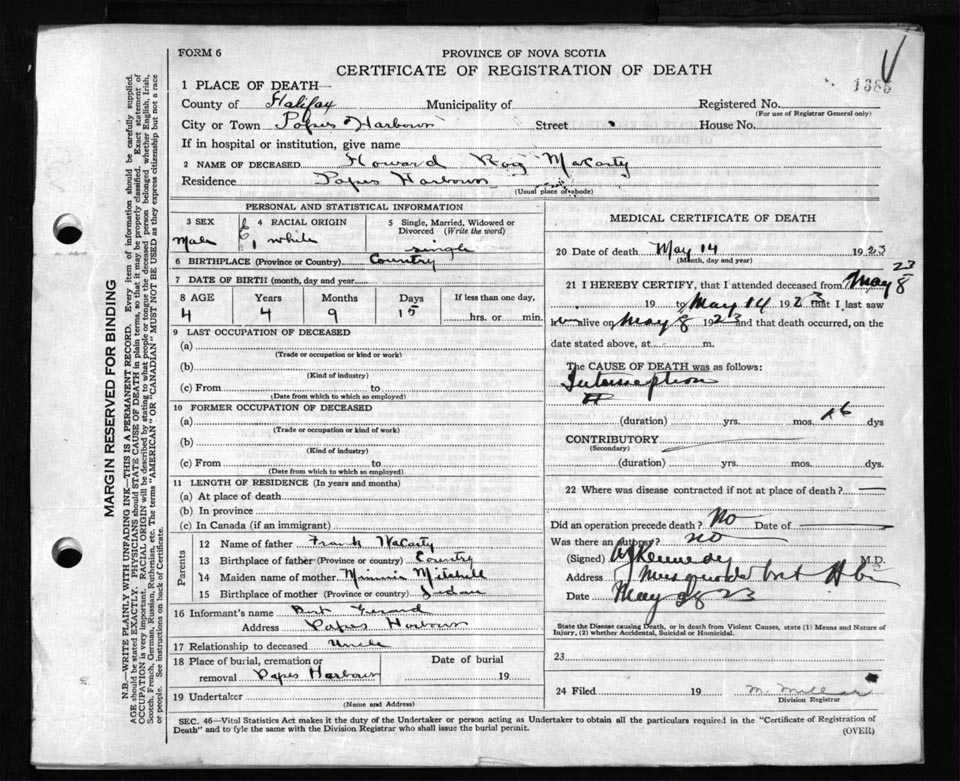 FORM 6
PROVINCE OF NOVA SCOTIA
CERTIFICATE OF REGISTRATION OF DEATH
1385
1 PLACE OF DEATH—
County of Halifax Municipality of Registered No.
(For use of Registrar General only)
City or Town Popes Harbour Street House No.
If in hospital or institution, give name
2 NAME OF DECEASED Howard Roy McCarty
Residence Popes Harbour
(Usual place of abode)
PERSONAL AND STATISTICAL INFORMATION
3 SEX 4 RACIAL ORIGIN 5 Single, Married, Widowed or Divorced (Write the word)
Male white single
6 BIRTHPLACE (Province or Country) Country
7 DATE OF BIRTH (month, day and year)
8 AGE Years Months Days If less than one day,
4 4 9 15 hrs. or min.
9 LAST OCCUPATION OF DECEASED
(a)
(Trade or occupation or kind of work)
(b)
(Kind of industry)
(c) From to
(Date from which to which so employed)
10 FORMER OCCUPATION OF DECEASED
(a)
(Trade or occupation or kind of work)
(b)
(Kind of industry)
(c) From to
(Date from which to which so employed)
11 LENGTH OF RESIDENCE (In years and months)
(a) At place of death
(b) In province
(c) In Canada (if an immigrant)
Parents
12 Name of father Frank McCarty
13 Birthplace of father (Province or country) Country
14 Maiden name of mother Minnie Mitchell
15 Birthplace of mother (Province or country)
16 Informant's name Bert Gerard
Address Popes Harbour
17 Relationship to deceased Uncle
18 Place of burial, cremation or removal Popes Harbour Date of burial 19
19 Undertaker
(Name and Address)
MEDICAL CERTIFICATE OF DEATH
20 Date of death May 14 1923
(Month, day and year)
21 I HEREBY CERTIFY, that I attended deceased from May 8 23
19 to May 14 1923 that I last saw
him alive on May 8 1923 and that death occurred, on the
date stated above, at m.
The CAUSE OF DEATH was as follows:
(duration) yrs. mos. 16 dys
CONTRIBUTORY
(Secondary)
(duration) yrs. mos. dys.
22 Where was disease contracted if not at place of death?
Did an operation precede death? No Date of
Was there an autopsy? no
(Signed) Kennedy M.D.
Address Musquodoboit Hbr
Date May 23
State the Disease causing Death, or in death from Violent Causes, state (1) Means and Nature of
Injury, (2) whether Accidental, Suicidal or Homicidal.
23
24 Filed 19
Division Registrar
SEC. 46—Vital Statistics Act makes it the duty of the Undertaker or person acting as Undertaker to obtain all the particulars required in the "Certificate of Registration of
Death" and to fyle the same with the Division Registrar who shall issue the burial permit.
(OVER)
MARGIN RESERVED FOR BINDING
N.B.—WRITE PLAINLY WITH UNFADING INK—THIS IS A PERMANENT RECORD. Every item of information should be carefully supplied.
AGE should be stated EXACTLY. PHYSICIANS should STATE CAUSE OF DEATH in plain terms, so that it may be properly classified. Exact statement of
OCCUPATION is very important. RACIAL ORIGIN will be described by stating to what people or tongue the deceased person belonged whether English, Irish,
Scotch, French, German, Russian, Ruthenian, etc. The terms "AMERICAN" OR "CANADIAN" MUST NOT BE USED as they express citizenship but not a race
or people. See instructions on back of Certificate.